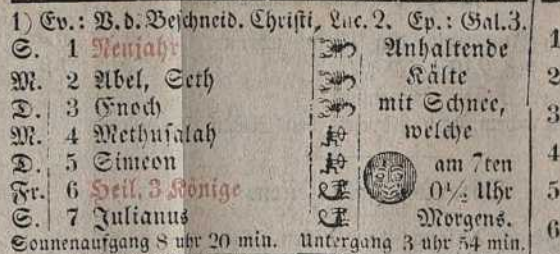 1) Ev.: V. d. Beschneid. Christi, Luc. 2. Ep.: Gal. 3.
S. 1 Neujahr Anhaltende
M. 2 Abel, Seth Kälte
D. 3 Enoch mit Schnee,
M. 4 Methusalah welche
D. 5 Simeon am 7ten
Fr. 6 Heil. 3 Könige 0½ Uhr
S. 7 Julianus Morgens.
Sonnenaufgang 8 uhr 20 min. Untergang 3 uhr 54 min.
1
2
3
4
5
6